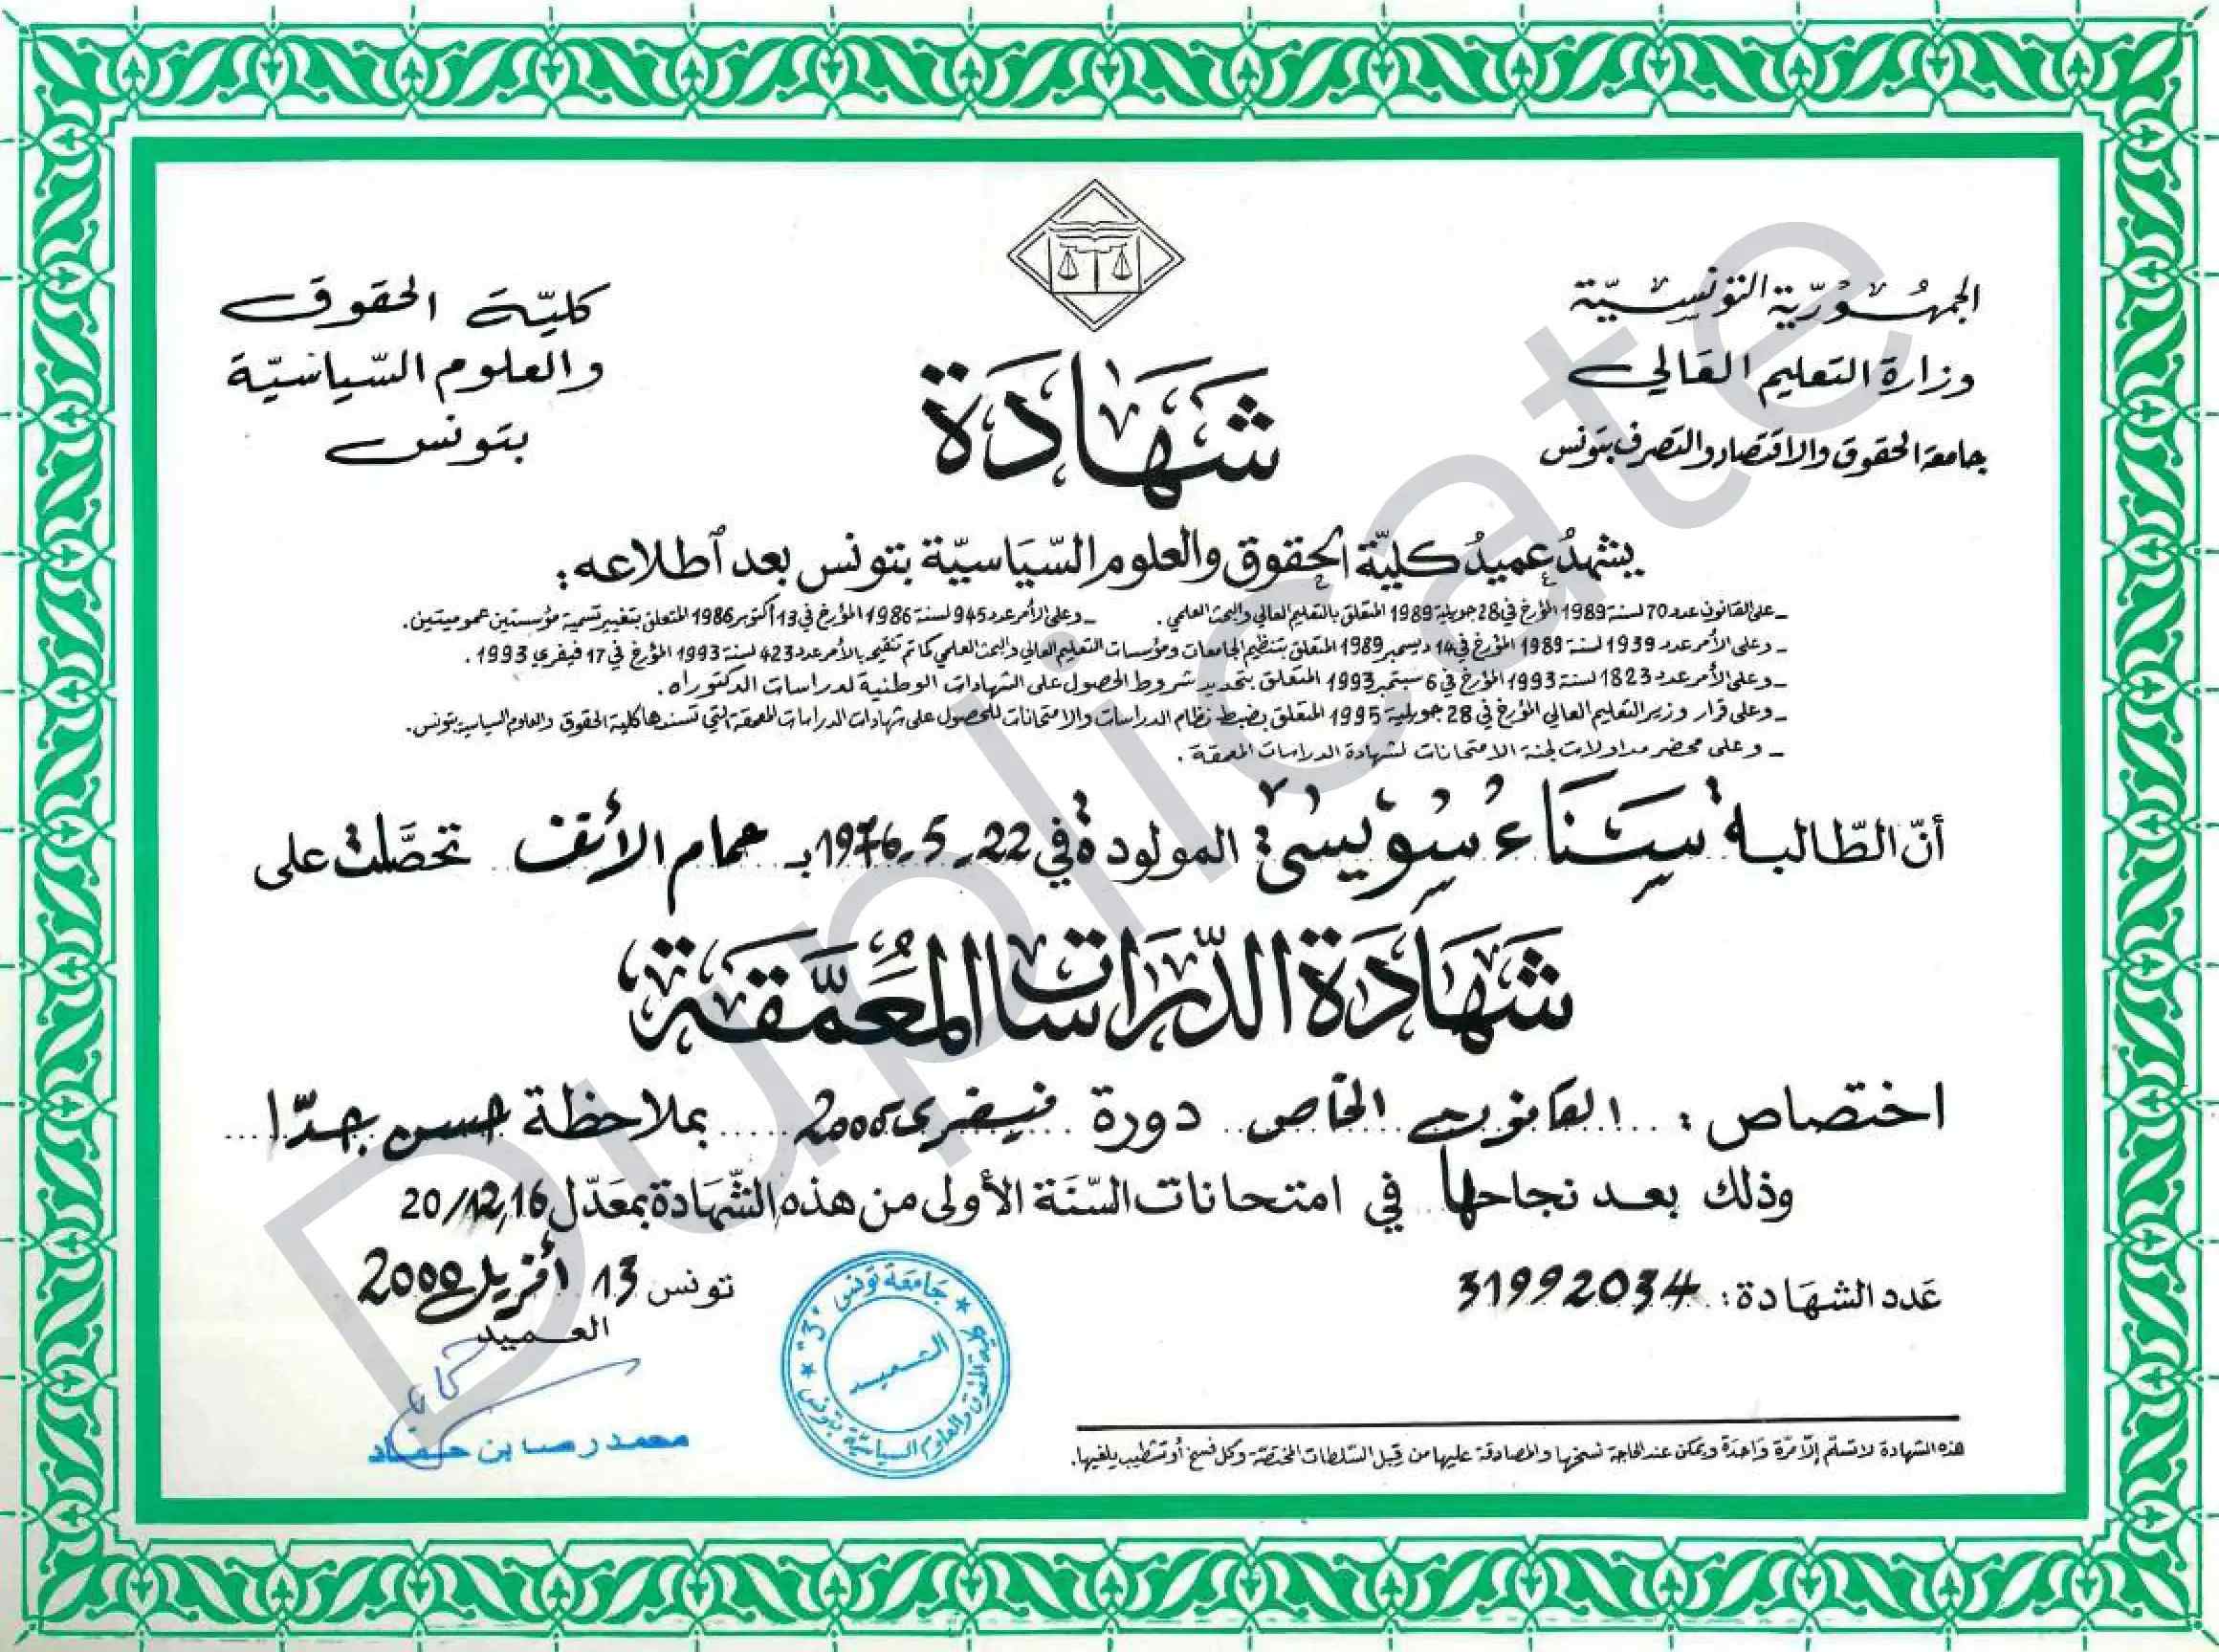 الجمهورية التونسية
وزارة التعليم العالي
جامعة الحقوق والاقتصاد والتصرف بتونس
كلية الحقوق
والعلوم السياسية
بتونس
شهادة
يشهد عميد كلية الحقوق والعلوم السياسية بتونس بعد اطلاعه:
ـ على القانون عدد 70 لسنة 1989 المؤرخ في 28 جويلية 1989 المتعلق بالتعليم العالي والبحث العلمي. ـ وعلى الأمر عدد 945 لسنة 1986 المؤرخ في 13 أكتوبر 1986 المتعلق بتغيير تسمية مؤسستين عموميتين.
ـ وعلى الأمر عدد 1939 لسنة 1989 المؤرخ في 14 ديسمبر 1989 المتعلق بتنظيم الجامعات ومؤسسات التعليم العالي والبحث العلمي كما تم تنقيحه بالأمر عدد 423 لسنة 1993 المؤرخ في 17 فيفري 1993.
ـ وعلى الأمر عدد 1823 لسنة 1993 المؤرخ في 6 سبتمبر 1993 المتعلق بتحديد شروط الحصول على الشهادات الوطنية لدراسات الدكتوراه.
ـ وعلى قرار وزير التعليم العالي المؤرخ في 28 جويلية 1995 المتعلق بضبط نظام الدراسات والامتحانات للحصول على شهادات الدراسات المعمقة التي تسندها كلية الحقوق والعلوم السياسية بتونس.
ـ وعلى محضر مداولات لجنة الامتحانات لشهادة الدراسات المعمقة.
أنّ الطّالبة سناء سويسي المولودة في 22-5-1976 بـ حمام الأنف تحصّلت على
شهادة الدّراسات المعمّقة
اختصاص: القانون الخاص دورة فيفري 2000 بملاحظة حسن جدّا
وذلك بعد نجاحها في امتحانات السّنة الأولى من هذه الشّهادة بمعدّل 12,16/20
عدد الشهادة: 31992034
تونس 13 أفريل 2000
العميد
محمد رضا بن حماد
جامعة تونس "3"
كلية الحقوق والعلوم السياسية بتونس
العميد
هذه الشهادة لا تسلّم إلّا مرّة واحدة ويمكن عند الحاجة نسخها والمصادقة عليها من قبل السّلطات المختصّة وكل فسخ أو تشطيب يلغيها.
Duplicate